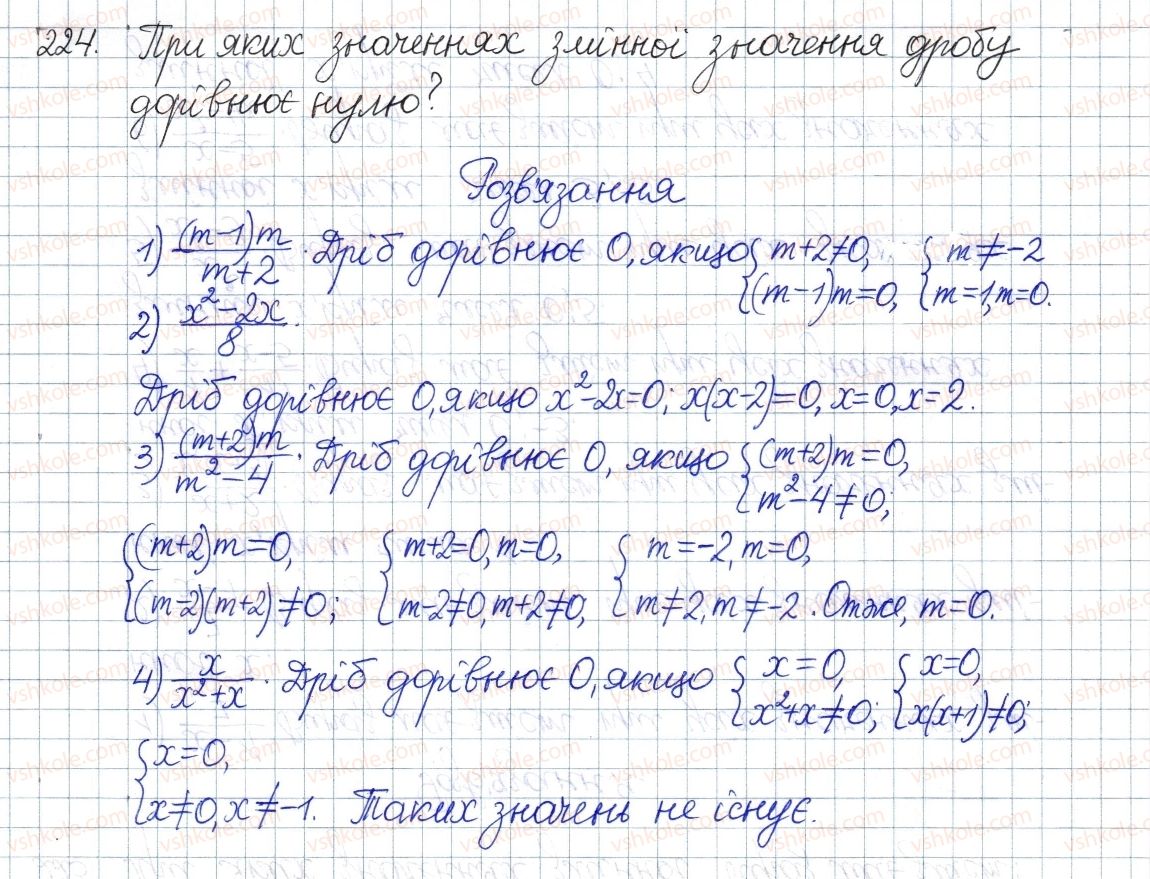 224. При яких значеннях змінної значення дробу
дорівнює нулю?
Розв'язання
1) (m-1)m/m+2. Дріб дорівнює 0, якщо { m+2≠0, (m-1)m=0, { m≠-2 m=1, m=0.
2) x²-2x/8.
Дріб дорівнює 0, якщо x²-2x=0; x(x-2)=0, x=0, x=2.
3) (m+2)m/m²-4. Дріб дорівнює 0, якщо { (m+2)m=0, m²-4≠0;
{ (m+2)m=0, (m-2)(m+2)≠0; { m+2=0, m=0, m-2≠0, m+2≠0, { m=-2, m=0, m≠2, m≠-2. Отже, m=0.
4) x/x²+x. Дріб дорівнює 0, якщо { x=0, x²+x≠0; { x=0, x(x+1)≠0;
{ x=0, x≠0, x≠-1. Таких значень не існує.